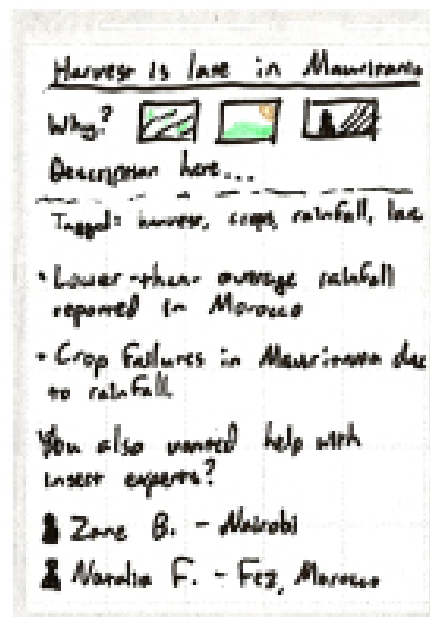 Harvest is late in Mauritania
Why?
Description here...
Tagged: harvest, crops, rainfall, late
• Lower-than-average rainfall
reported in Morocco
• Crop Failures in Mauritania due
to rainfall
You also wanted help with
insect experts?
Zane B. - Nairobi
Natalia F. - Fez, Morocco